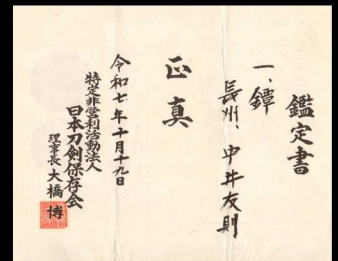 鑑定書
一、鐔
長州、中井友則
正真
令和七年十月十九日
特定非営利活動法人
日本刀剣保存会
理事長 大橋
博